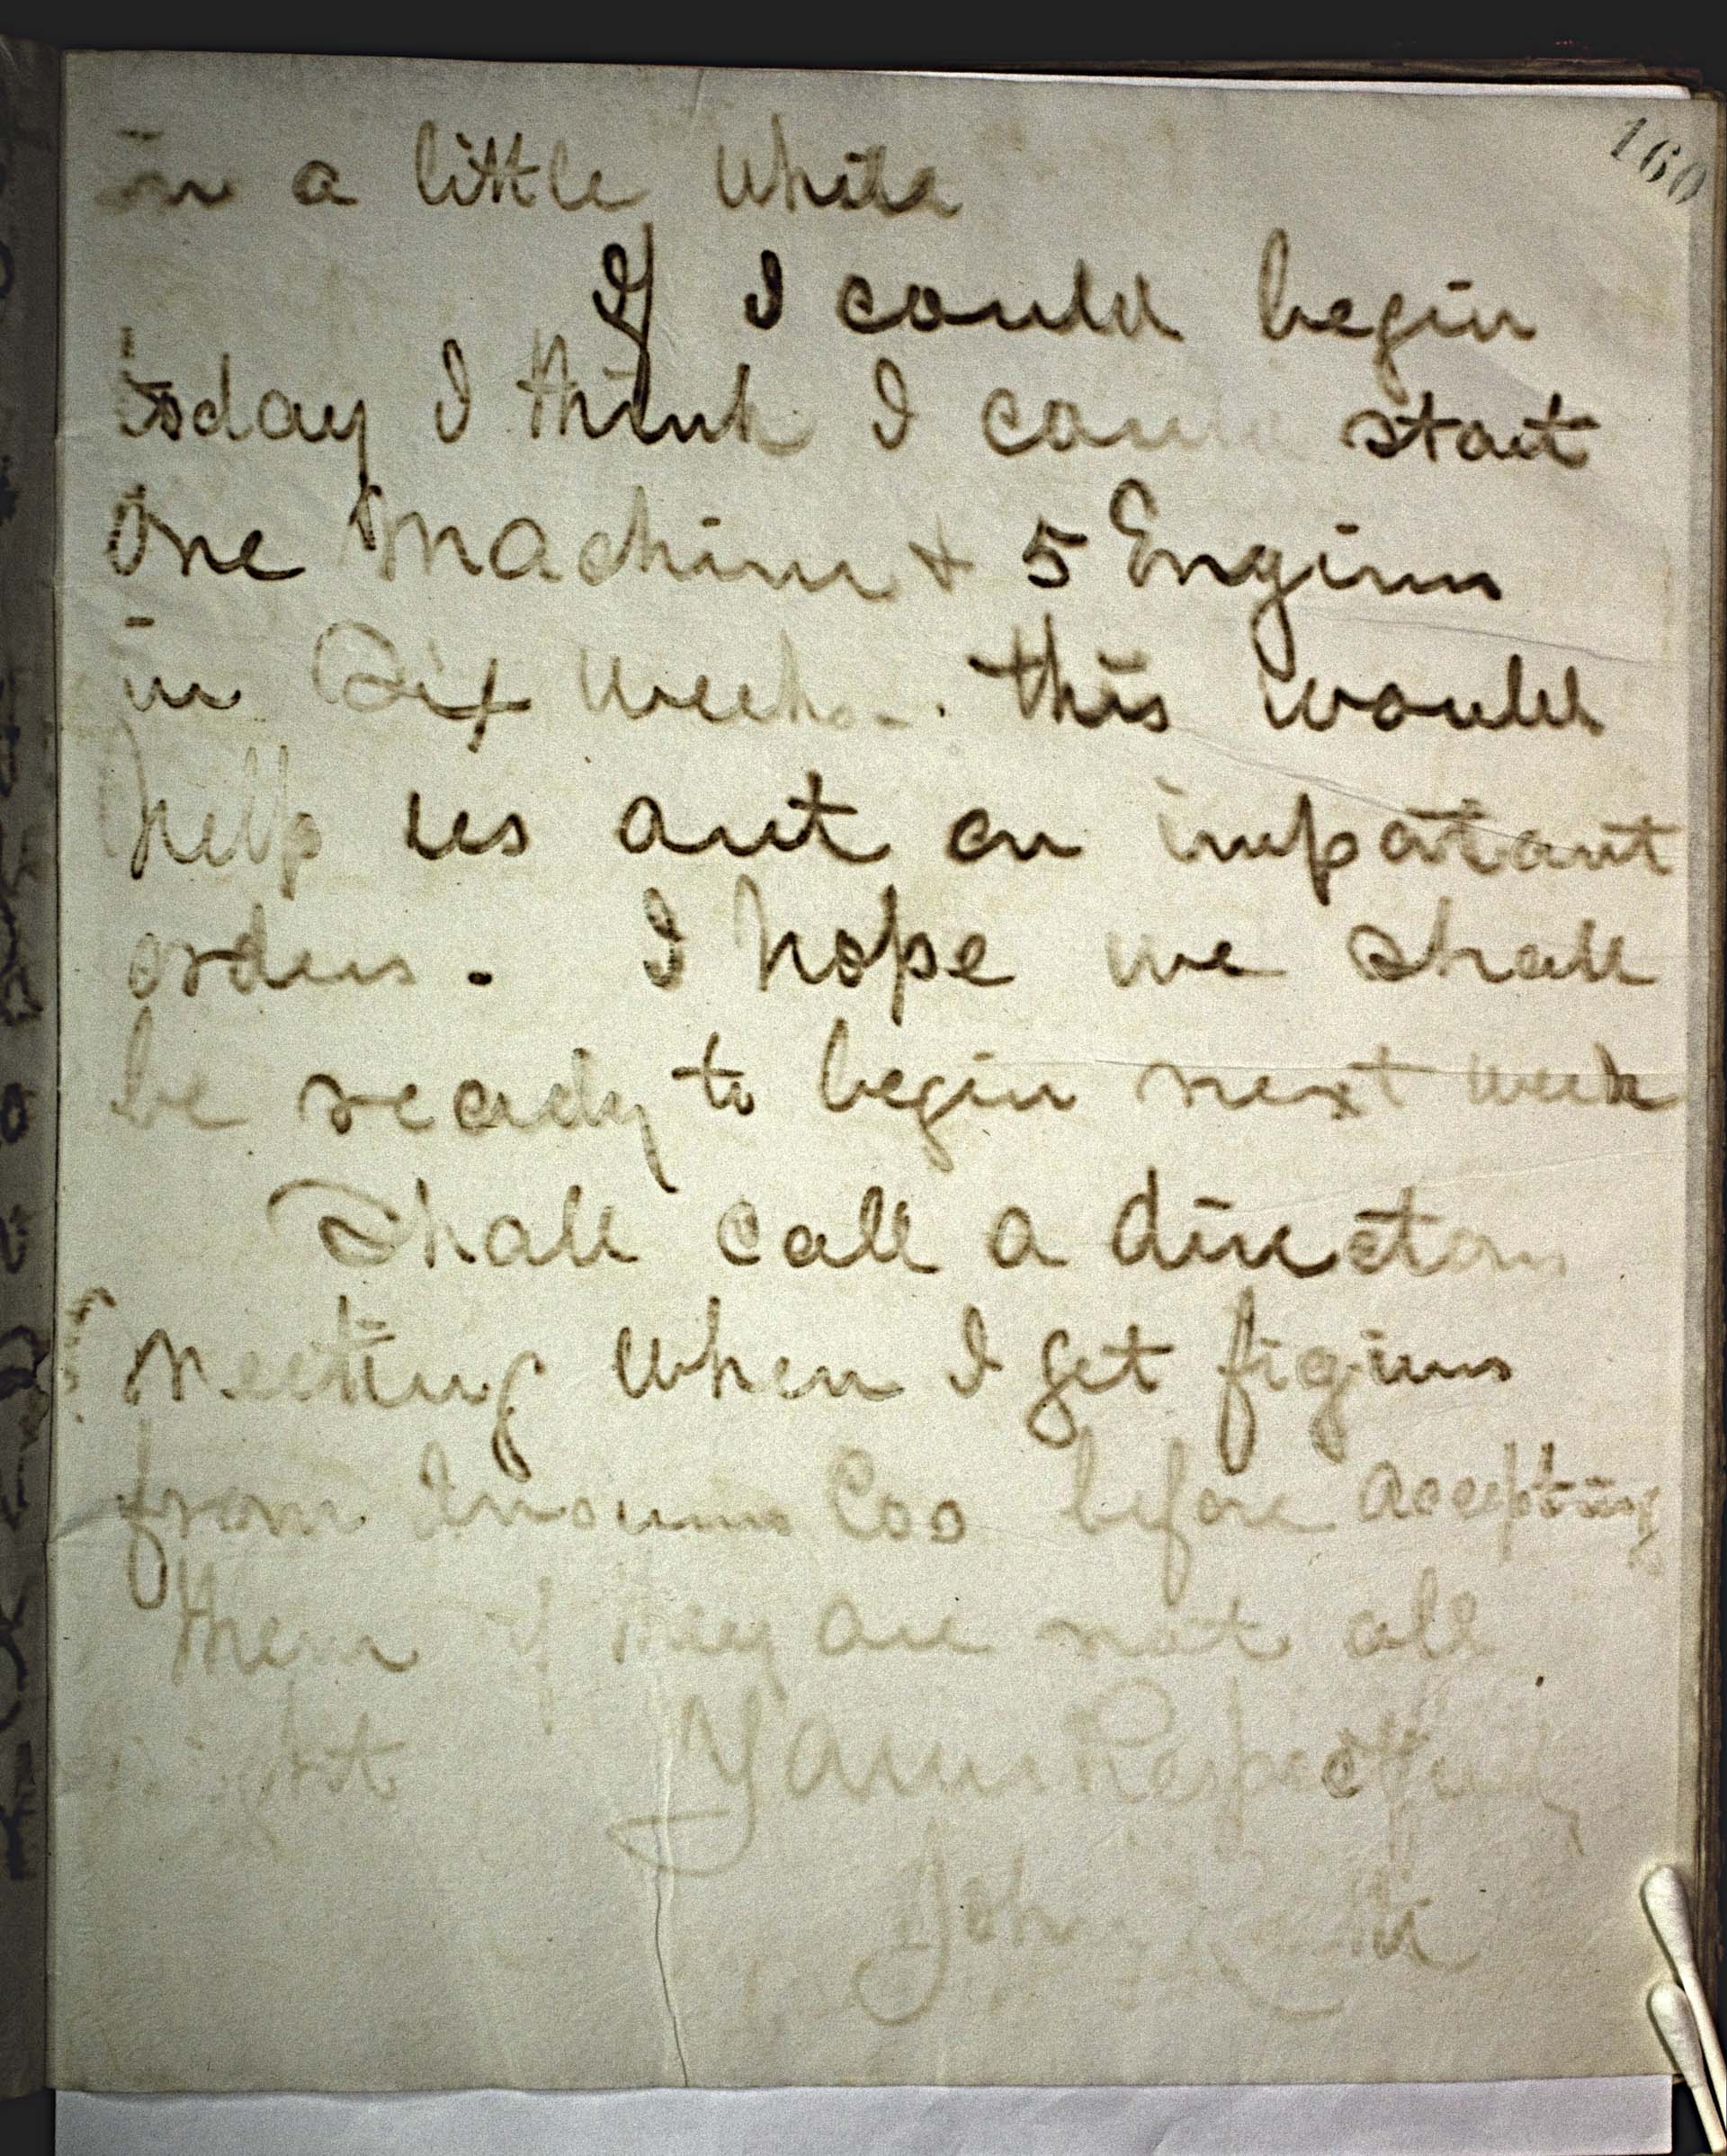 160
in a little while
If I could begin
today I think I could start
One Machine + 5 Engines
in Six weeks. this would
help us out on important
orders. I hope we shall
be ready to begin next week
Shall call a directors
meeting when I get figures
from Insurance Cos before accepting
them if they are not all
right Yours Respectfully
John